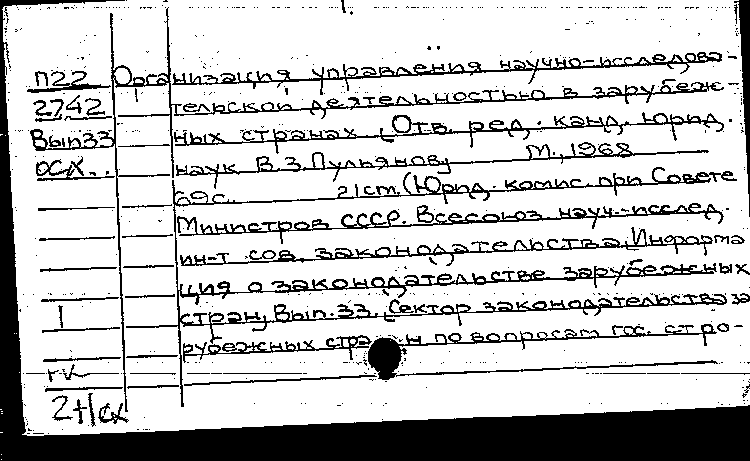 П22 Организация управления научно-исследова-
2742 тельской деятельностью в зарубеж-
Вып33 ных странах [Отв. ред. канд. юрид.
осх.. наук В.З.Пульянов] М., 1968
69с. 21см. (Юрид. комис. при Совете
Министров СССР. Всесоюз. науч.-исслед.
ин-т сов. законодательства. Информа
ция о законодательстве зарубежных
стран, Вып.33. Сектор законодательства за
рубежных стра н по вопросам гос. стро-
гк
2+1сх